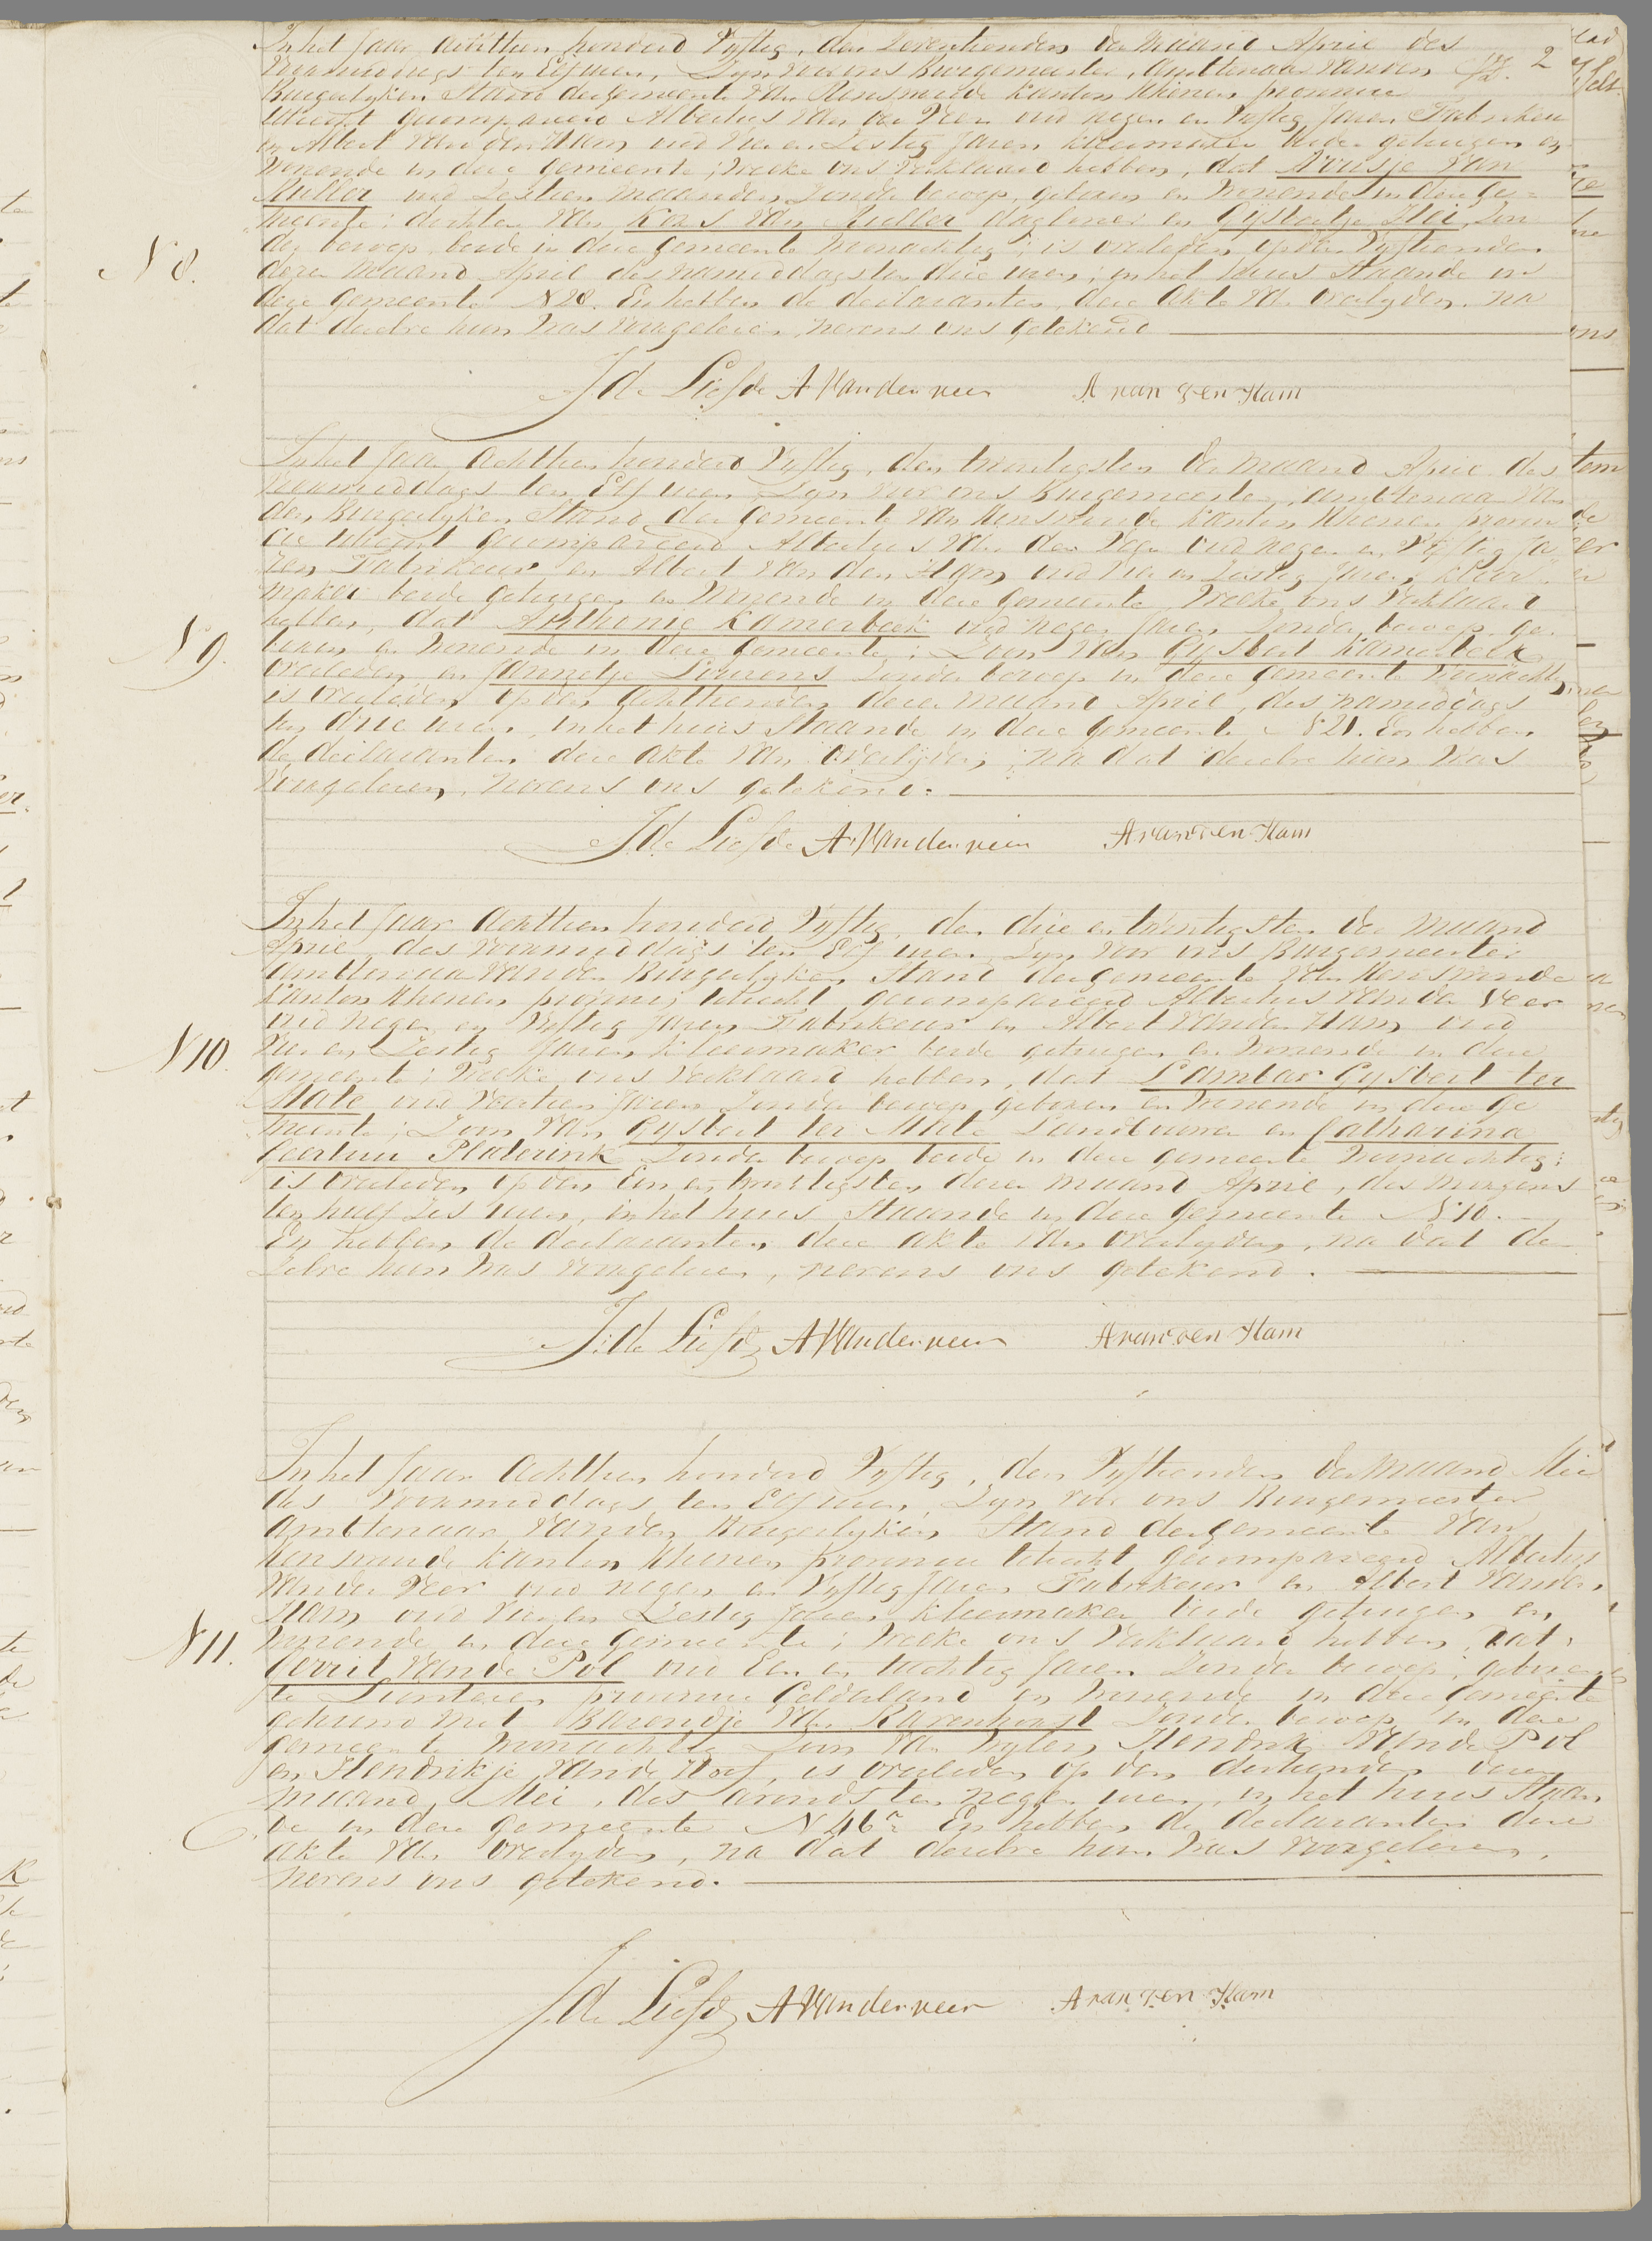 In het Jaar Achttien honderd Vijftig, den Zeventienden der Maand April des
Voormiddags ten Elf uren, Zyn voor ons Burgemeester, Ambtenaar van den 2
Burgerlyken Stand der Gemeente van Renswoude Kanton Rhenen provincie
Utrecht gecompareerd Albertus van der Veer oud negen en Vyftig Jaren Fabrikeur
en Albert van den Ham oud Vier en Zestig Jaren kleermaker beide getuigen en
Wonende in deze Gemeente; Welke ons Verklaard hebben, dat van
Muller oud Zestien maanden Zonder beroep, geboren en Wonende in deze Ge=
meente; dochter van van Muller daglooner en Gysbertje Zon
der beroep beide in deze Gemeente Woonachtig; is overleden op den Vyftienden
dezer Maand April des namiddags ten drie uren; in het huis Staande in
deze Gemeente N 28. En hebben de declaranten deze akte van overlyden, na
dat dezelve hun was voorgelezen, nevens ons getekend
N 8.
J de Liefde A Vander veer A van den Ham
In het Jaar Achttien honderd Vyftig, den twintigsten der Maand April des
Voormiddags ten Elf uren, Zyn voor ons Burgemeester, ambtenaar van
den Burgerlyken Stand der Gemeente van Renswoude Kanton Rhenen provin
cie Utrecht gecompareerd Albertus van der Veer oud negen en Vyftig Ja
ren Fabrikeur en Albert van den Ham oud Vier en Zestig Jaren kleer
maker beide getuigen en Wonende in deze Gemeente, Welke ons Verklaard
hebben, dat Anthonie Kamerbeek oud negen Jaren Zonder beroep ge
boren en Wonende in deze Gemeente; Zoon van Gysbert Kamerbeek
N 9.
overleden en Jannetje Lourens Zonder beroep in deze Gemeente Woonachtig
is overleden op den Achttienden dezer maand April, des namiddags
ten drie uren, in het huis Staande in deze Gemeente N 21. En hebben
de declaranten deze akte van overlyden; na dat dezelve hun was
voorgelezen, nevens ons getekend.
J de Liefde A Vander veer A van den Ham
In het Jaar Achttien honderd Vyftig, den drie en twintigsten der Maand
April des voormiddags ten Elf uren, Zyn voor ons Burgemeester
Ambtenaar van den Burgerlyken Stand der gemeente van Renswoude
Kanton Rhenen provincie Utrecht gecompareerd Albertus van der Veer
oud negen en Vyftig Jaren Fabrikeur en Albert van den Ham oud
Vier en Zestig Jaren kleermaker beide getuigen en Wonende in deze
N 10.
gemeente; Welke ons Verklaard hebben, dat Lambar Gysbert ter
Mate oud Veertien Jaren Zonder beroep geboren en Wonende in deze ge
meente; Zoon van Gysbert ter Mate Landbouwer en Catharina
Geertrui Platerink Zonder beroep beide in deze gemeente Woonachtig;
is overleden op den Een en twintigsten dezer maand April, des morgens
ten half Zes uren, in het huis Staande in deze gemeente N 10.
En hebben de declaranten deze akte van overlyden, na dat de
Zelve hun was voorgelezen, nevens ons getekend.
J. de Liefde A Vander veer A van den Ham
In het Jaar Achttien honderd Vyftig, den Vyftienden der Maand Mei
des Voormiddags ten Elf uren, Zyn voor ons Burgemeester
Ambtenaar van den Burgerlyken Stand der gemeente van
Renswoude Kanton Rhenen provincie Utrecht gecompareerd Albertus
van der Veer oud negen en Vyftig Jaren Fabrikeur en Albert van den
Ham oud Vier en Zestig Jaren kleermaker beide getuigen en
Wonende in deze gemeente; Welke ons Verklaard hebben, dat
N 11.
Gerrit van de Pol oud Een en tachtig Jaren Zonder beroep; geboren
te Lunteren provincie Gelderland en Wonende in deze gemeente
gehuwd met Barendje van Ravenhorst Zonder beroep in deze
gemeente Woonachtig Zoon van Wylen Hendrik van de Pol
en Hendrikje van de Hoef, is overleden op den dertienden dezer
maand Mei, des avonds ten negen uren, in het huis Staan
de in deze gemeente N 46a En hebben de declaranten deze
akte van overlyden, na dat dezelve hun was voorgelezen,
nevens ons getekend.
J de Liefde A Vander veer A van den Ham